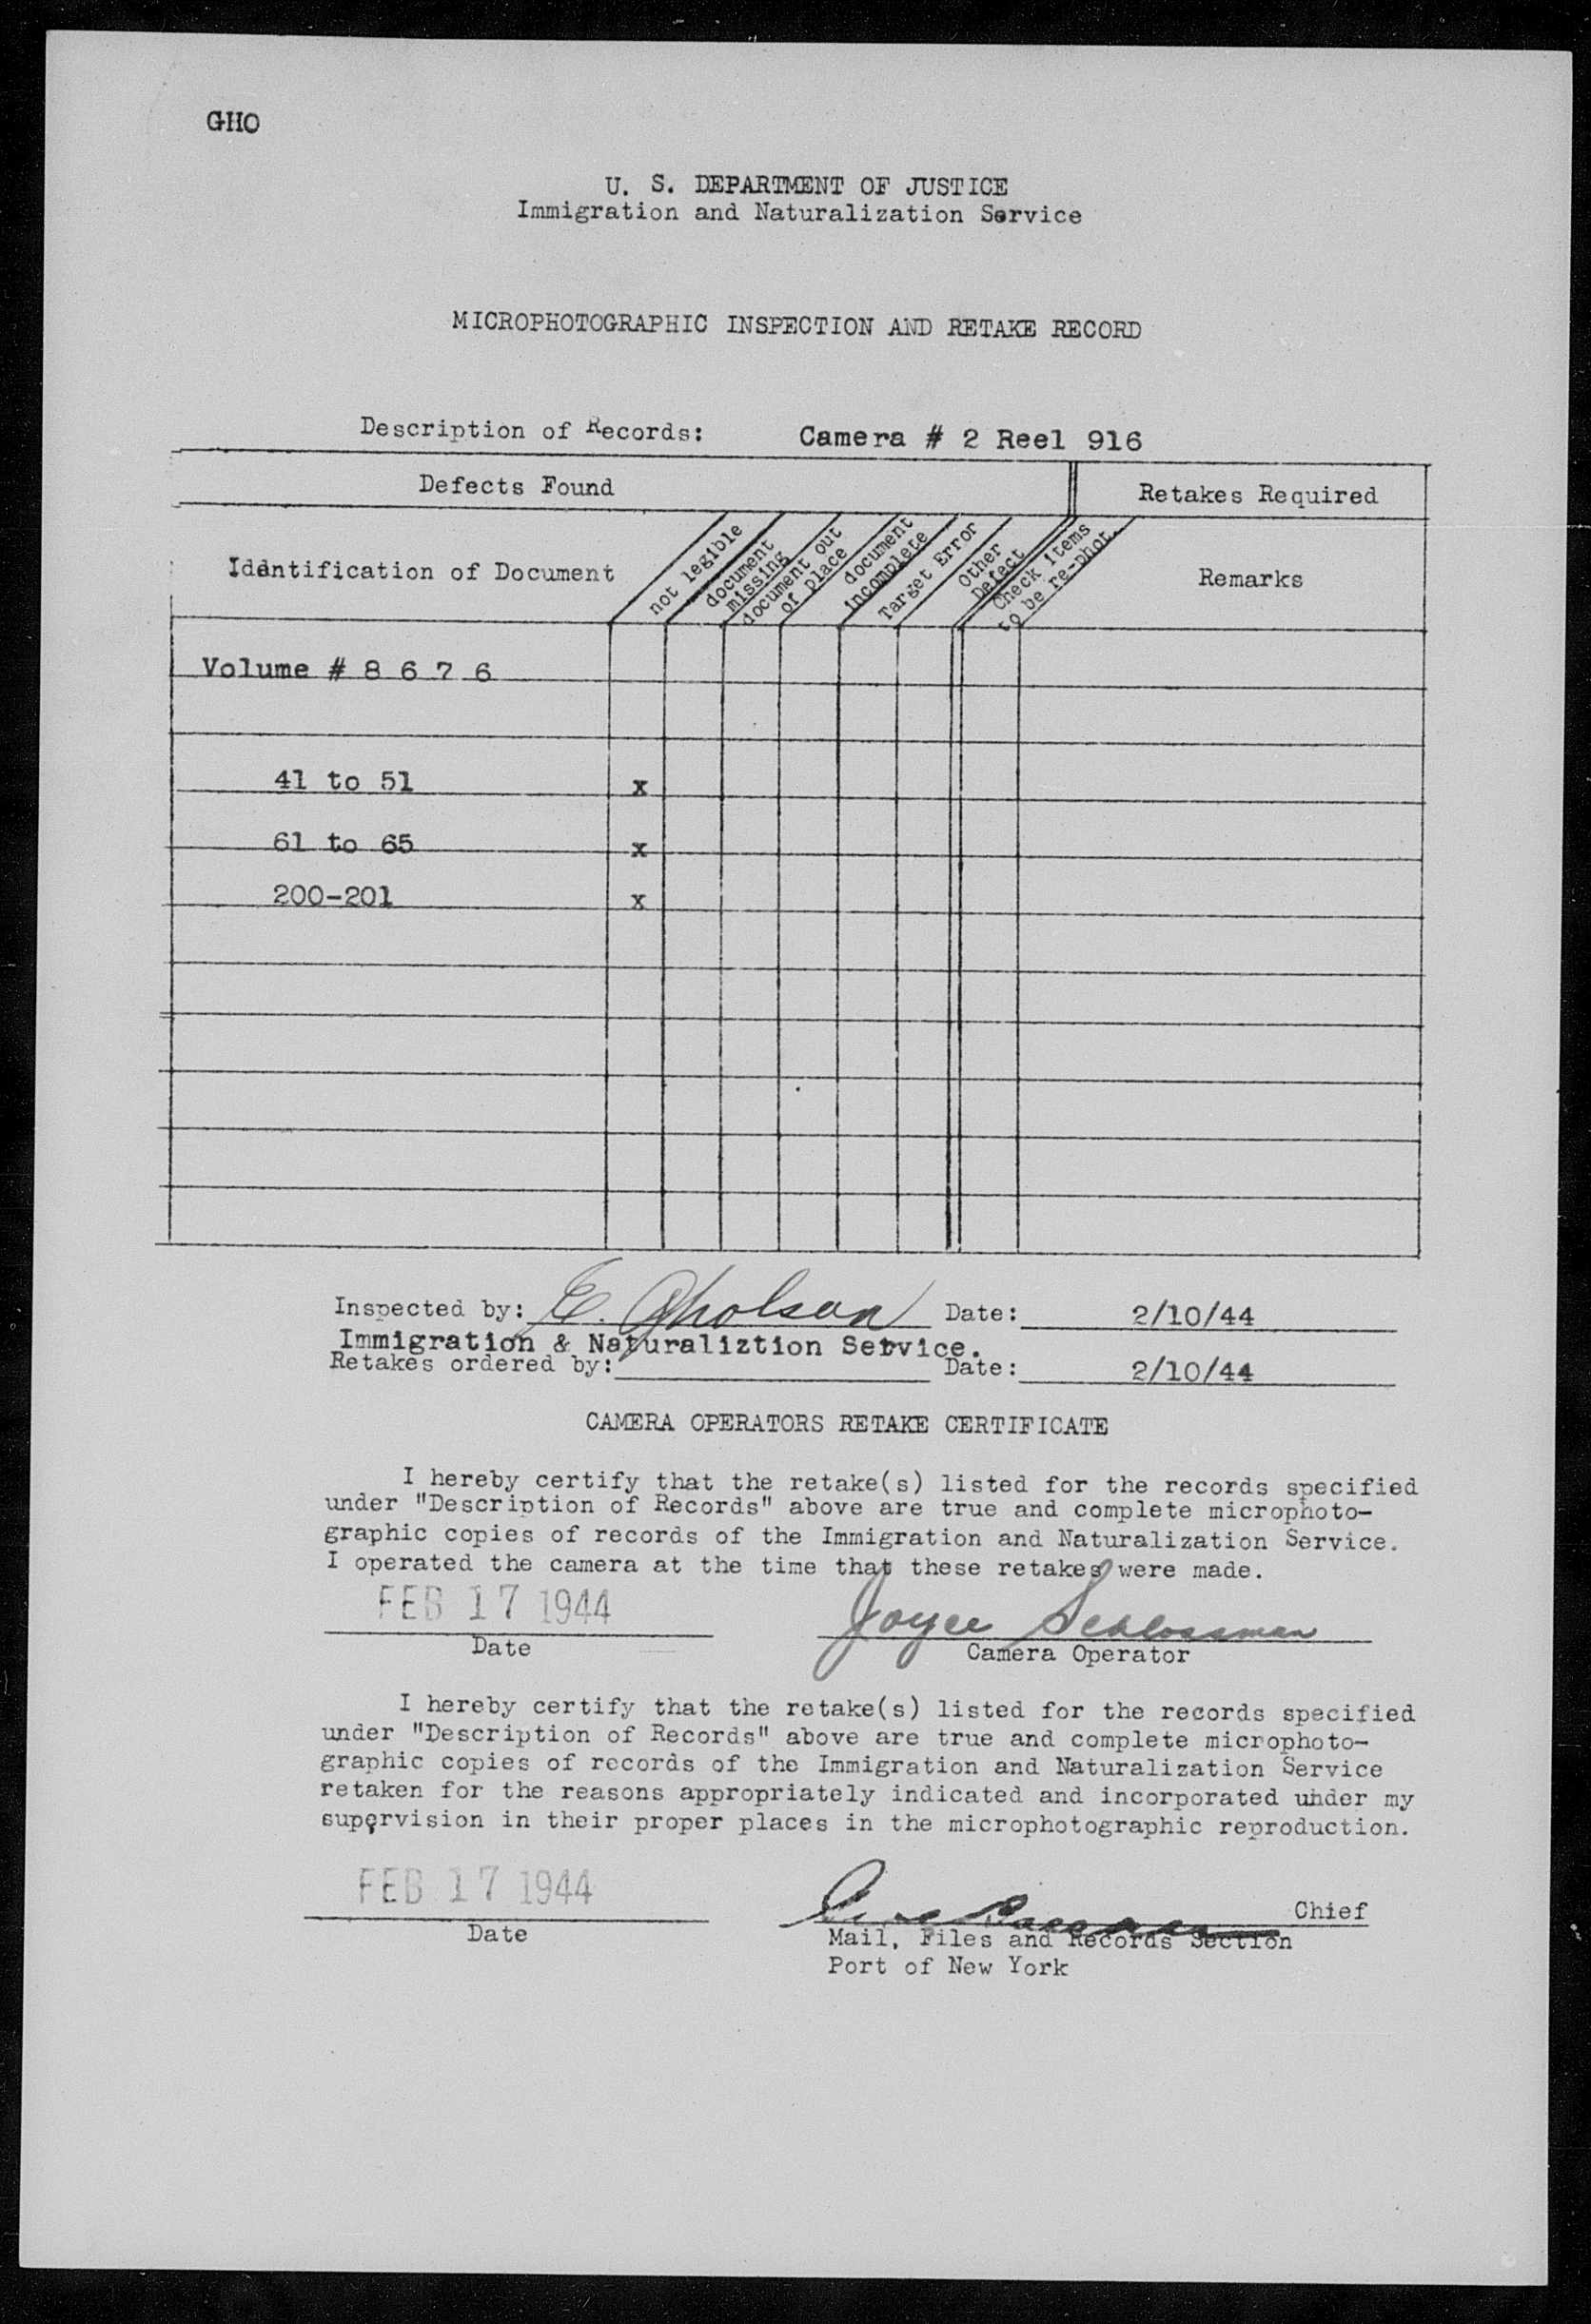 GHO
U. S. DEPARTMENT OF JUSTICE
Immigration and Naturalization Service
MICROPHOTOGRAPHIC INSPECTION AND RETAKE RECORD
Description of Records: Camera # 2 Reel 916
Defects Found
Retakes Required
Identification of Document
not legible
document missing
document out of place
document incomplete
Target Error
Other Defect
Check items to be re-phot.
Remarks
Volume # 8 6 7 6
41 to 51 x
61 to 65 x
200-201 x
Inspected by: E. Gholson Date: 2/10/44
Immigration & Naturaliztion Service.
Retakes ordered by: Date: 2/10/44
CAMERA OPERATORS RETAKE CERTIFICATE
I hereby certify that the retake(s) listed for the records specified
under "Description of Records" above are true and complete microphoto-
graphic copies of records of the Immigration and Naturalization Service.
I operated the camera at the time that these retakes were made.
FEB 17 1944 Joyce Schlossman
Date Camera Operator
I hereby certify that the retake(s) listed for the records specified
under "Description of Records" above are true and complete microphoto-
graphic copies of records of the Immigration and Naturalization Service
retaken for the reasons appropriately indicated and incorporated under my
supervision in their proper places in the microphotographic reproduction.
FEB 17 1944 Chief
Date Mail, Files and Records Section
Port of New York